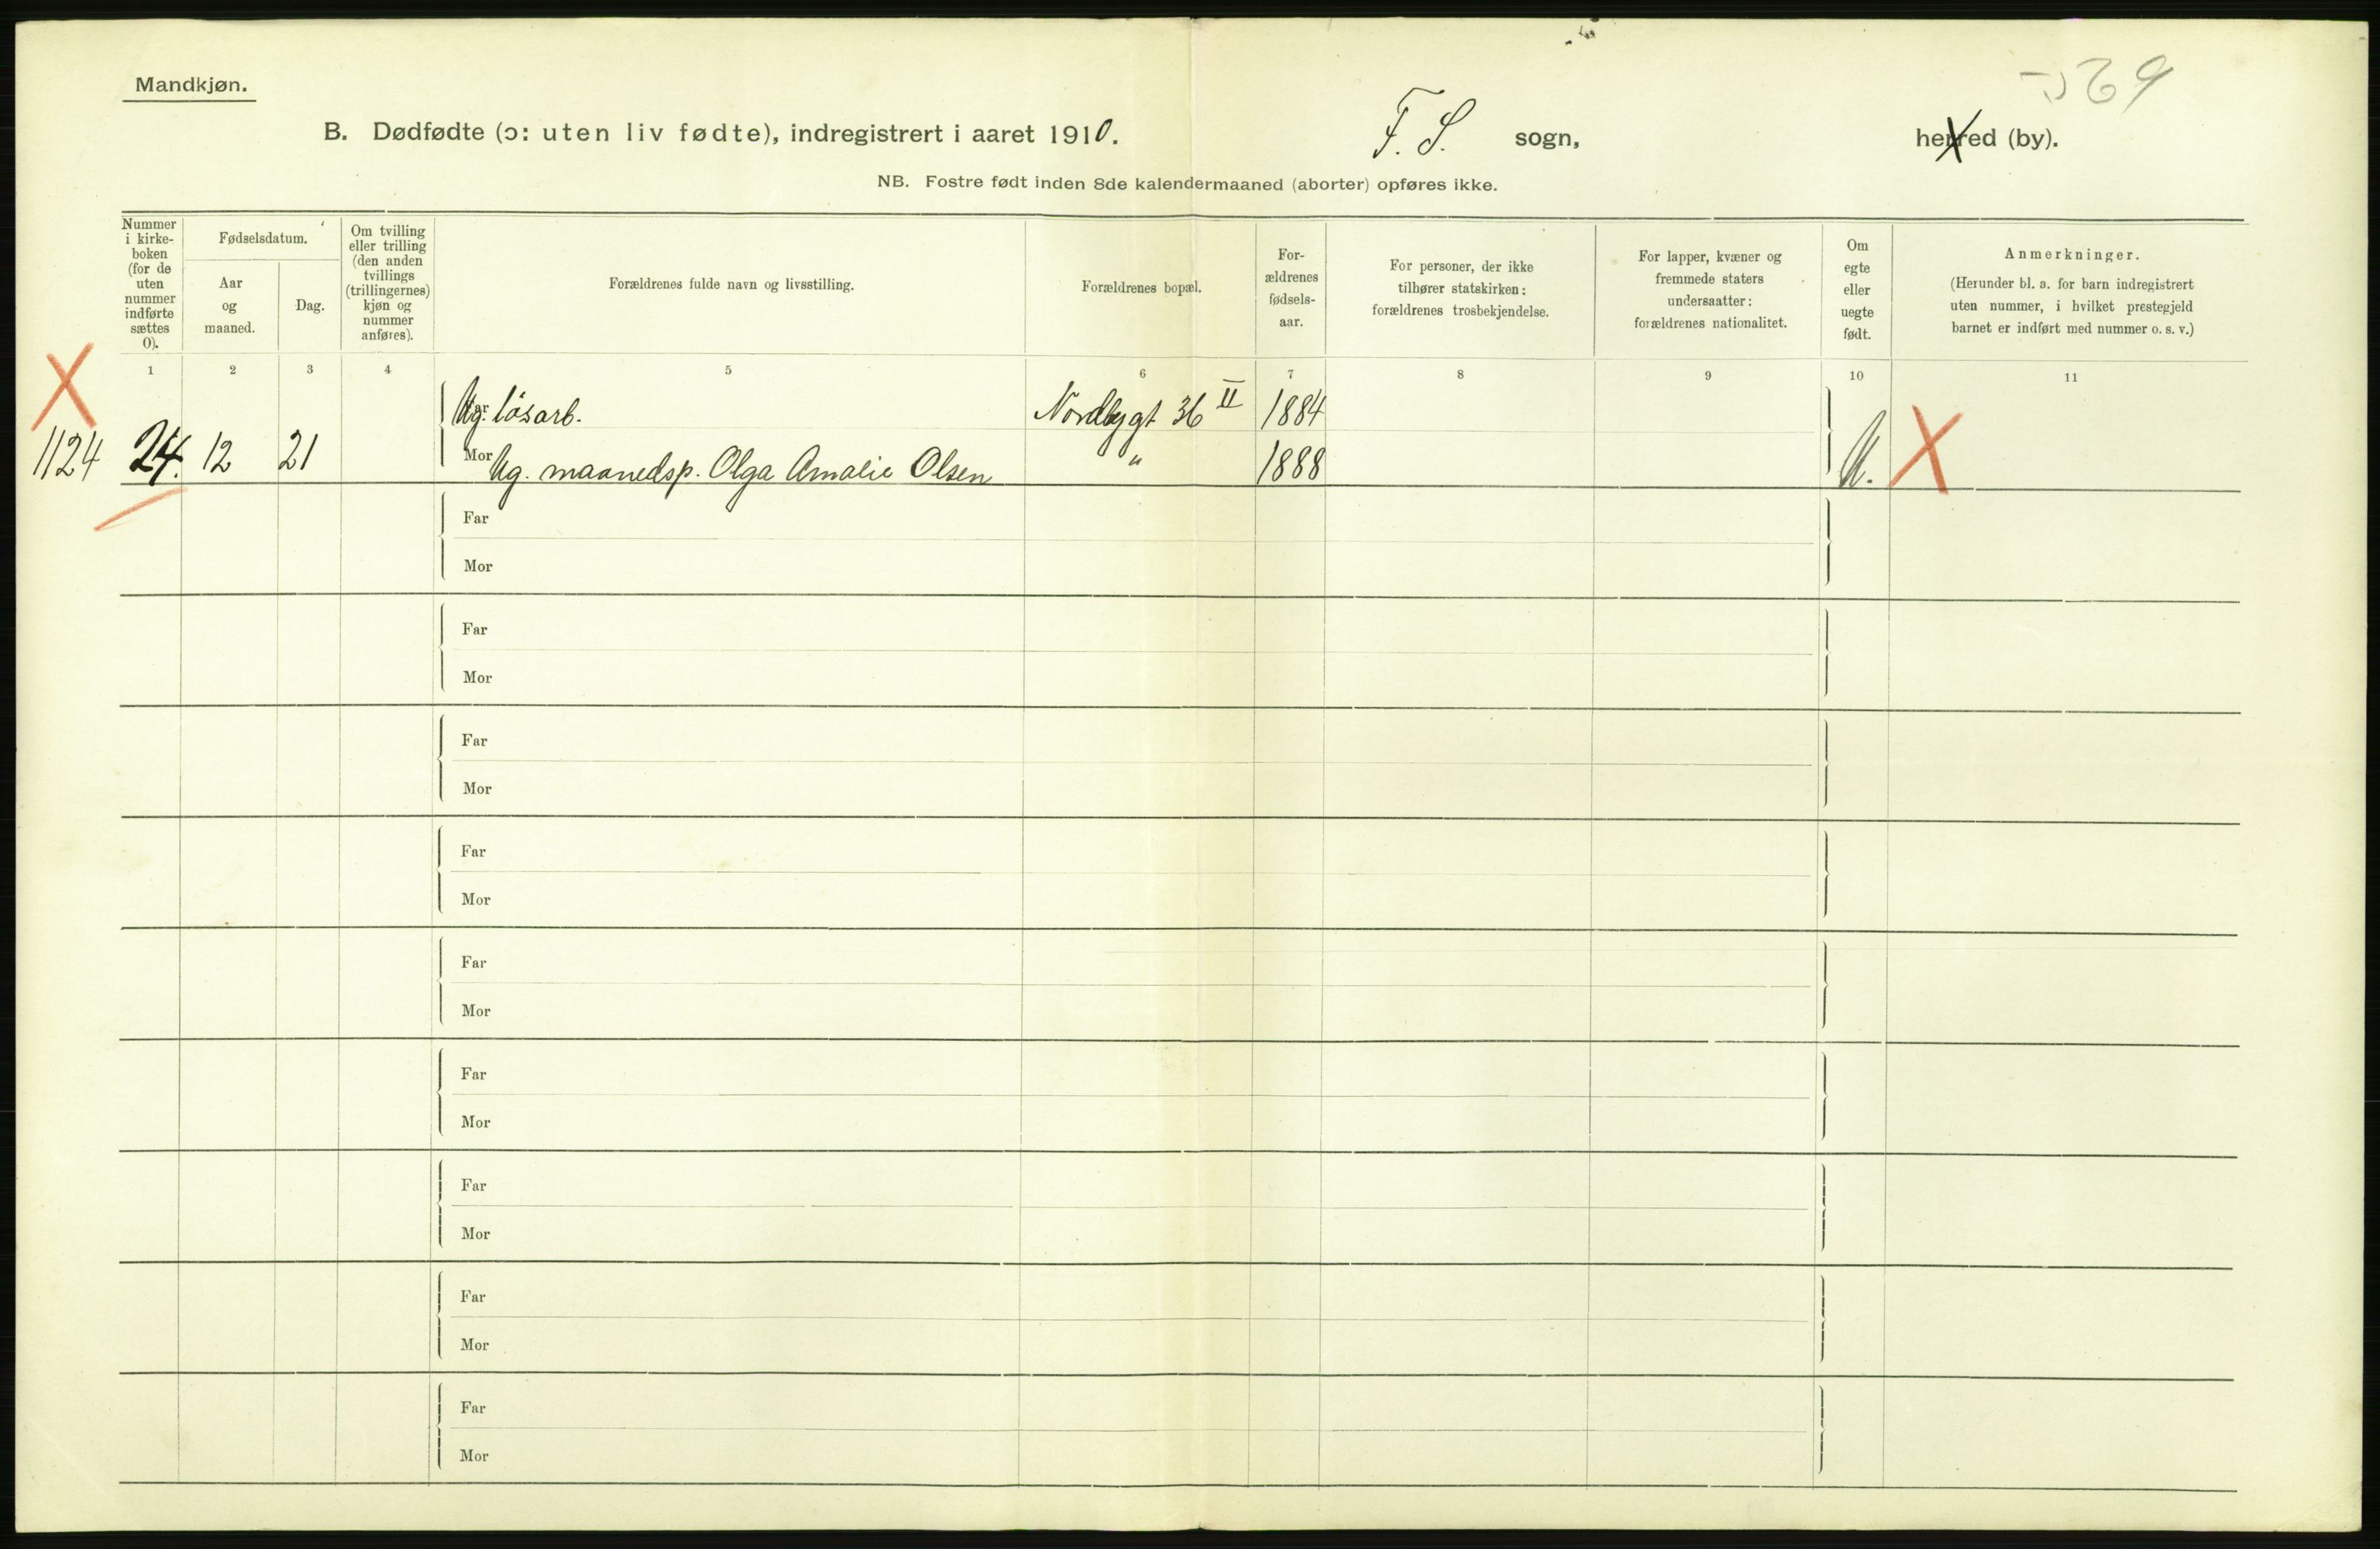 Mandkjøn.
B. Dødfødte (ɔ: uten liv fødte), indregistrert i aaret 1910.
F. S. sogn,
herred (by).
NB. Fostre født inden 8de kalendermaaned (aborter) opføres ikke.
Nummer
i kirke-
boken
(for de
uten
nummer
indførte
sættes
0).
Fødselsdatum.
Aar
og
maaned.
Dag.
Om tvilling
eller trilling
(den anden
tvillings
(trillingernes)
kjøn og
nummer
anføres).
Forældrenes fulde navn og livsstilling.
Forældrenes bopæl.
For-
ældrenes
fødsels-
aar.
For personer, der ikke
tilhører statskirken:
forældrenes trosbekjendelse.
For lapper, kvæner og
fremmede staters
undersaatter:
forældrenes nationalitet.
Om
egte
eller
uegte
født.
Anmerkninger.
(Herunder bl. a. for barn indregistrert
uten nummer, i hvilket prestegjeld
barnet er indført med nummer o. s. v.)
1 2 3 4 5 6 7 8 9 10 11
Far Ug. løsarb. Nordbygt 36 II 1884
1124 24. 12 21 Mor Ug. maanedsp. Olga Amalie Olsen " 1888 U.
Far
Mor
Far
Mor
Far
Mor
Far
Mor
Far
Mor
Far
Mor
Far
Mor
Far
Mor
Far
Mor